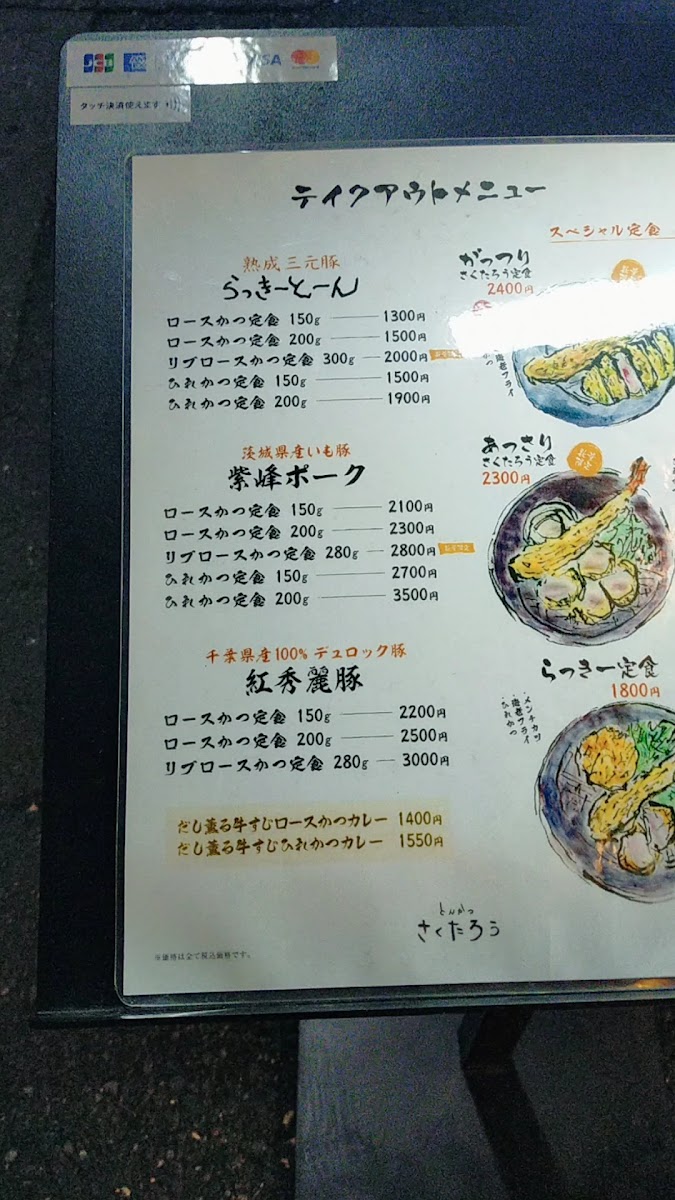 JCB
VISA
タッチ決済使えます
テイクアウトメニュー
熟成三元豚
らっきーとーん
ロースかつ定食 150g 1300円
ロースかつ定食 200g 1500円
リブロースかつ定食 300g 2000円
ひれかつ定食 150g 1500円
ひれかつ定食 200g 1900円
茨城県産いも豚
紫峰ポーク
ロースかつ定食 150g 2100円
ロースかつ定食 200g 2300円
リブロースかつ定食 280g 2800円
ひれかつ定食 150g 2700円
ひれかつ定食 200g 3500円
千葉県産100% デュロック豚
紅秀麗豚
ロースかつ定食 150g 2200円
ロースかつ定食 200g 2500円
リブロースかつ定食 280g 3000円
だし薫る牛すじロースかつカレー 1400円
だし薫る牛すじひれかつカレー 1550円
スペシャル定食
がっつり
さくたろう定食
2400円
海老フライ
あっさり
さくたろう定食
2300円
らっきー定食
1800円
・メンチカツ
・海老フライ
・ひれかつ
とんかつ
さくたろう
※価格は全て税込価格です。